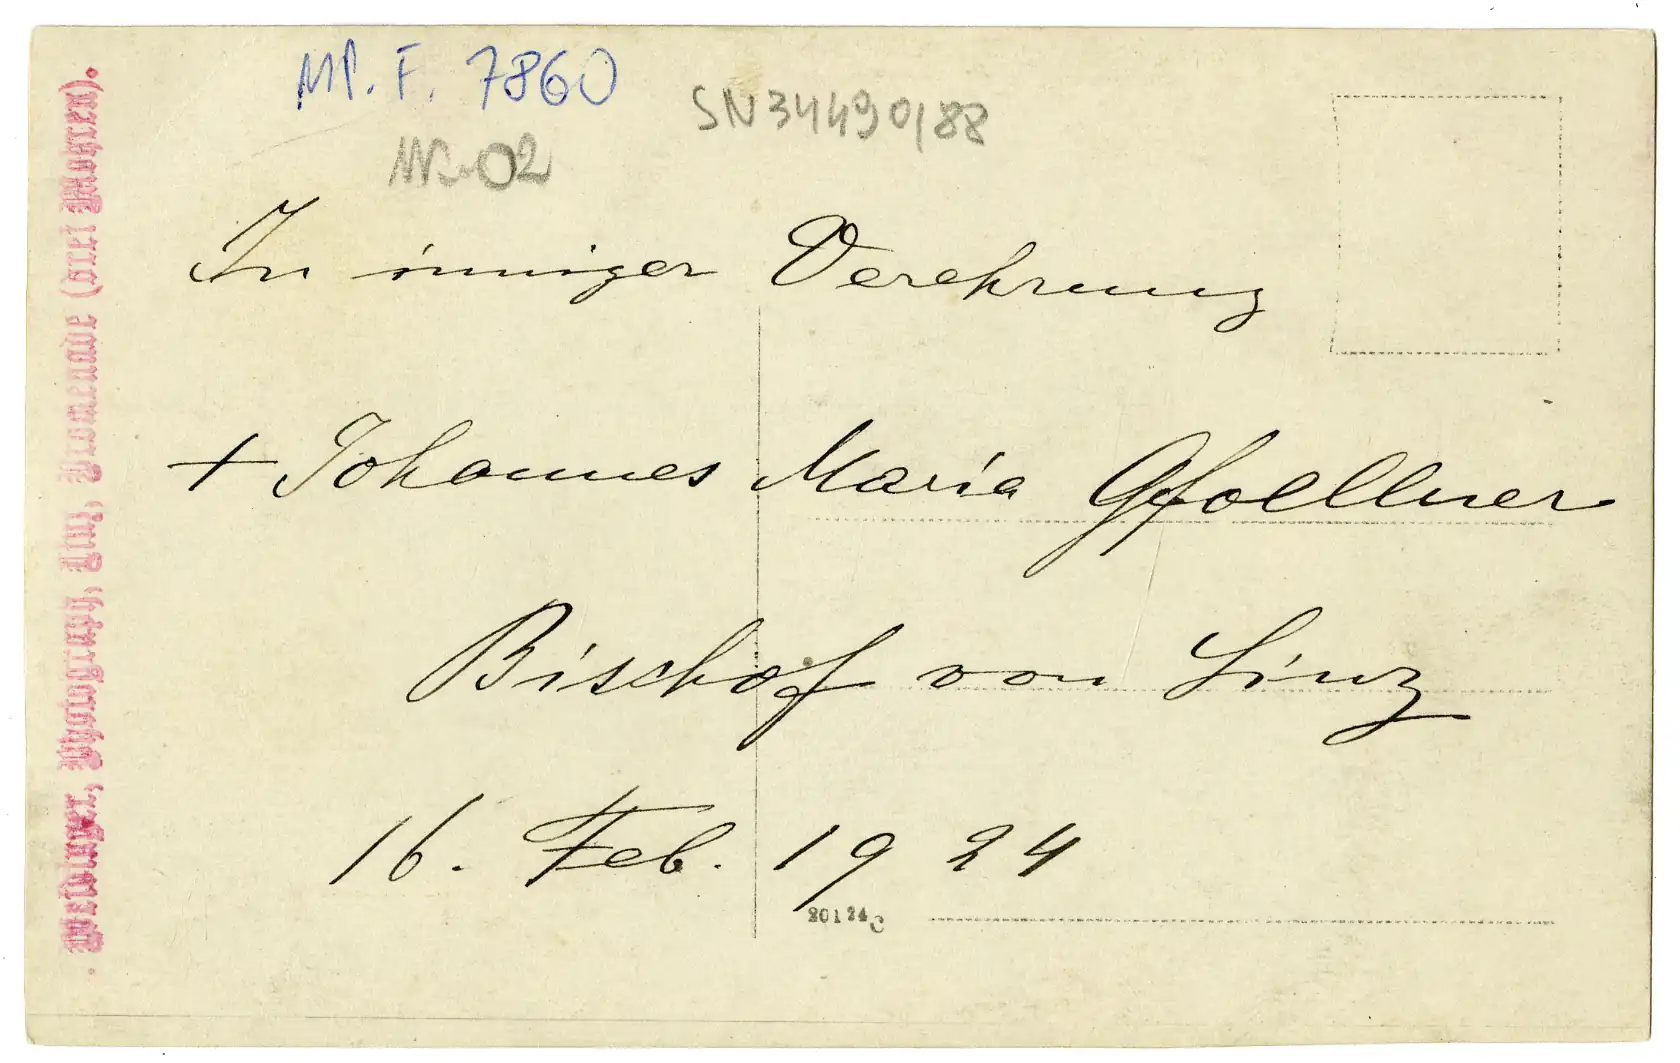 MP. F. 7860
SN34490/88
Nr. 02
In inniger Verehrung
+ Johannes Maria Gfoellner
Bischof von Linz
16. Feb. 1924
80124
Photograph, Linz, Promenade (drei Mohren).